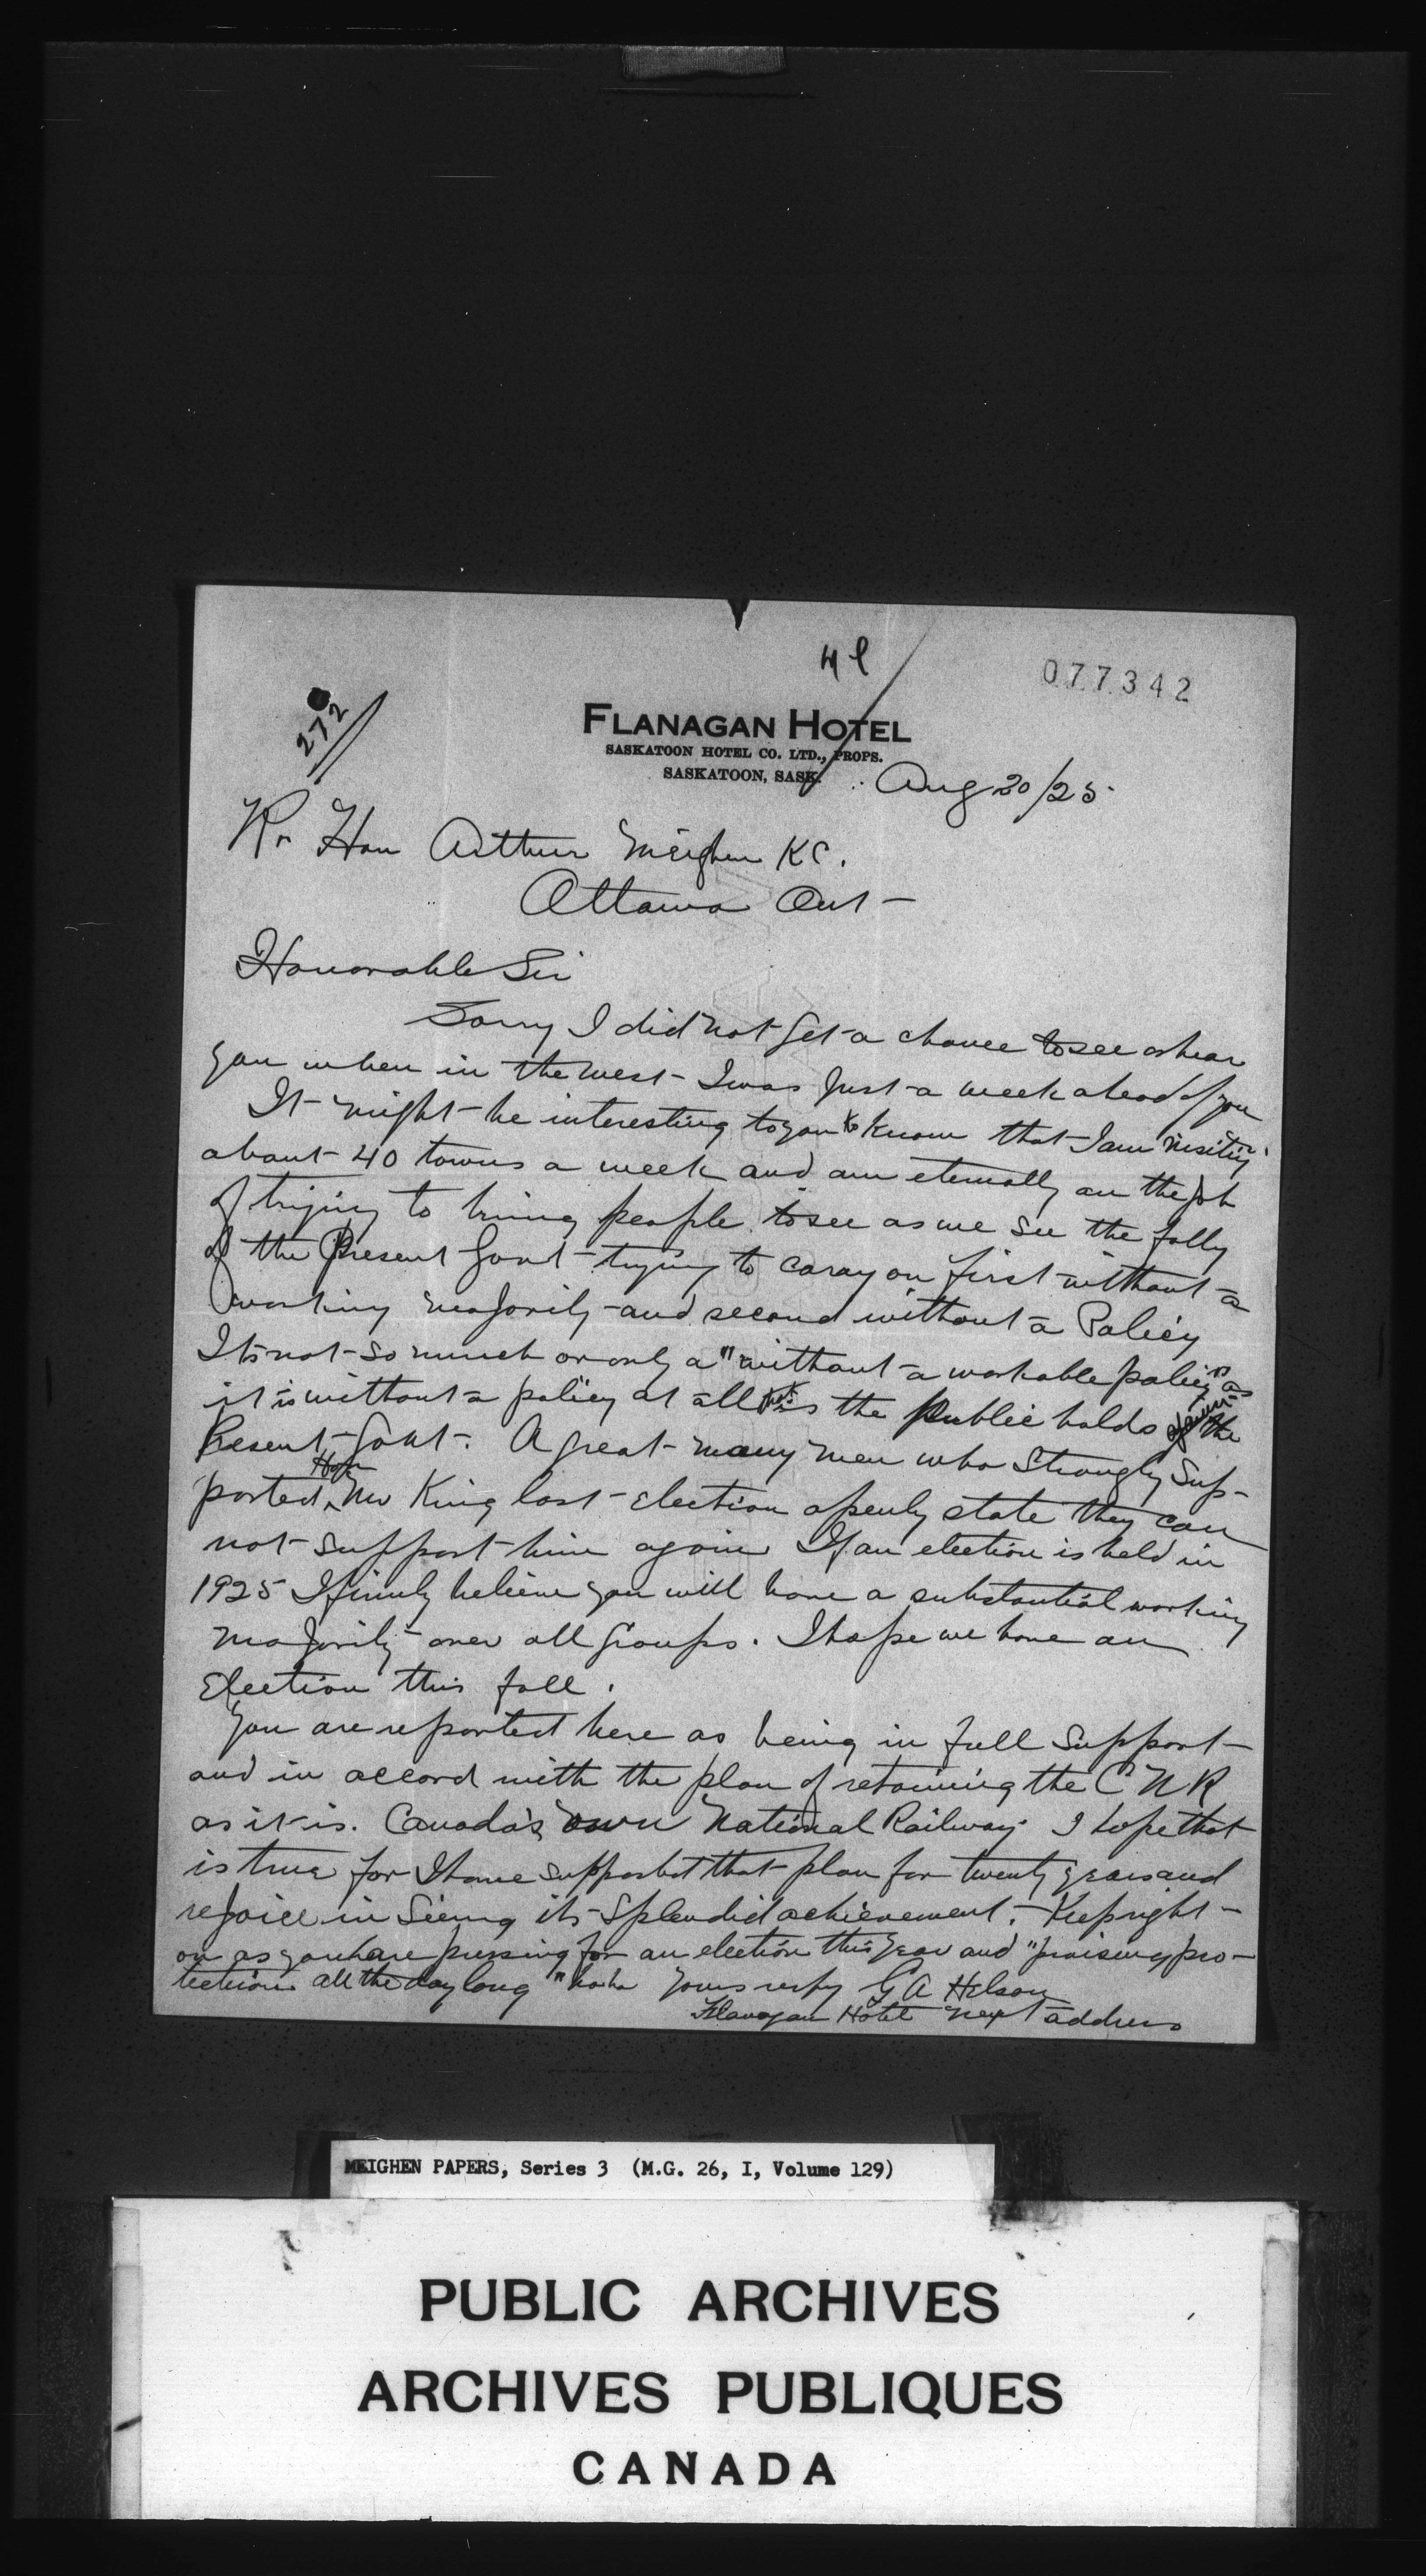 41
077342
272
FLANAGAN HOTEL
SASKATOON HOTEL CO. LTD., PROPS.
SASKATOON, SASK.
Aug 20/25.
Rt Hon Arthur Meighen KC.
Ottawa Ont -
Honorable Sir
Sorry I did not get a chance to see or hear
you when in the west - I was just a week ahead of you
It might be interesting to you to know that I am visiting
about 40 towns a week and am eternally on the job
of trying to bring people to see as we see the folly
of the Present Govt - trying to carry on first without a
working majority - and second without a Policy
Its not so much or only a "without a workable policy" as
it is without a policy at all is the Public holds of the
Present Govt. A great many men who strongly Sup-
ported Hon Mr King last election openly state they can
not support him again If an election is held in
1925 I firmly believe you will have a substantial working
majority over all Groups. I hope we have an
Election this fall.
You are reported here as being in full Support
and in accord with the plan of retaining the C N R
as it is. Canada's own National Railway I hope that
is true for I have supported that plan for twenty years and
rejoice in Seeing its Splendid achievement. Keep right -
on as you have pressing for an election this year and "praising pro-
tection all the day long" haha Yours very G A Hilson
Flanagan Hotel next address
MEIGHEN PAPERS, Series 3 (M.G. 26, I, Volume 129)
PUBLIC ARCHIVES
ARCHIVES PUBLIQUES
CANADA